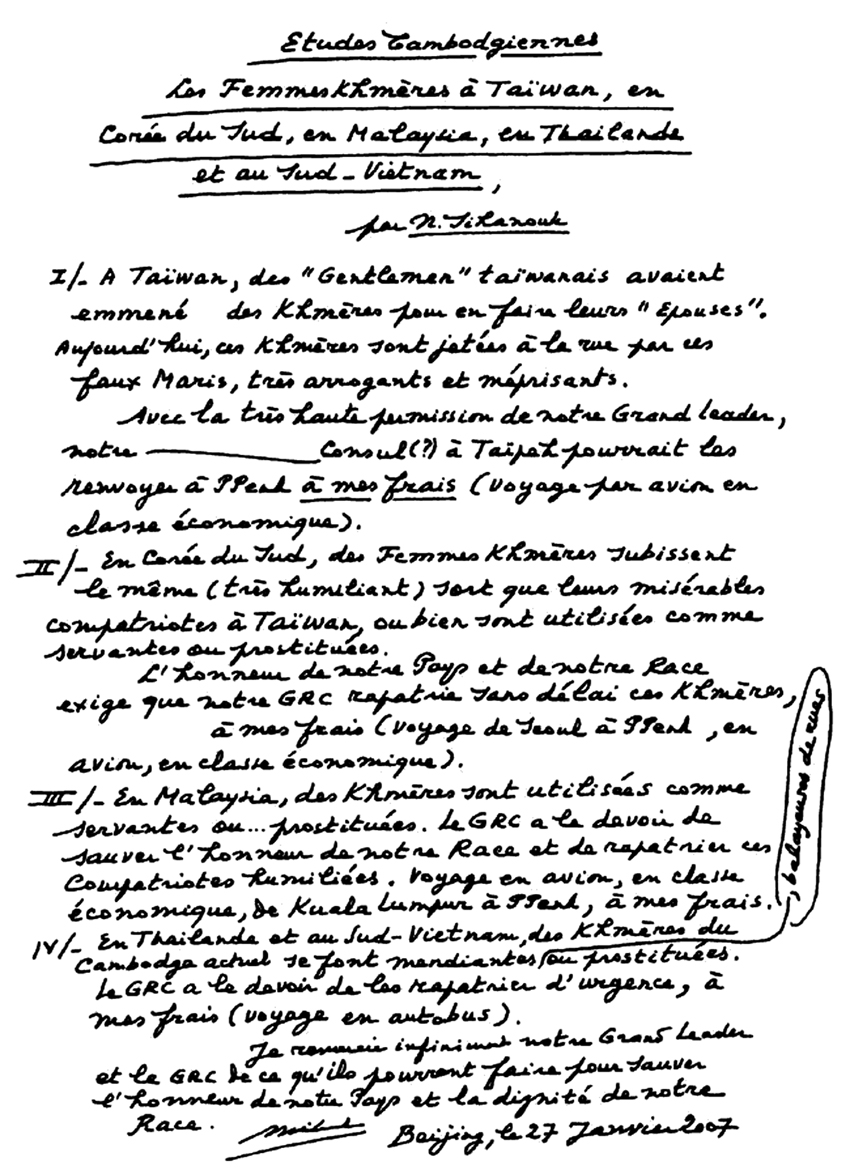 Etudes Cambodgiennes
Les Femmes Khmères à Taïwan, en
Corée du Sud, en Malaysia, en Thaïlande
et au Sud-Viêtnam,
par N. Sihanouk
I/- A Taïwan, des "Gentlemen" taïwanais avaient
emmené des Khmères pour en faire leurs "Epouses".
Aujourd'hui, ces Khmères sont jetées à la rue par ces
faux Maris, très arrogants et méprisants.
Avec la très haute permission de notre Grand leader,
notre Consul(?) à Taïpeh pourrait les
renvoyer à PPenh à mes frais (voyage par avion en
classe économique).
II/- En Corée du Sud, des Femmes Khmères subissent
le même (très humiliant) sort que leurs misérables
compatriotes à Taïwan, ou bien sont utilisées comme
servantes ou prostituées.
L'honneur de notre Pays et de notre Race
exige que notre GRC rapatrie sans délai ces Khmères,
à mes frais (voyage de Seoul à PPenh, en
avion, en classe économique).
III/- En Malaysia, des Khmères sont utilisées comme
servantes ou... prostituées. Le GRC a le devoir de
sauver l'honneur de notre Race et de rapatrier ces
Compatriotes humiliées. Voyage en avion, en classe
économique, de Kuala Lumpur à PPenh, à mes frais.
IV/- En Thaïlande et au Sud-Vietnam, des Khmères du
Cambodge actuel se font mendiantes, ou prostituées.
, balayeuses de rues
Le GRC a le devoir de les rapatrier d'urgence, à
mes frais (voyage en autobus).
Je remercie infiniment notre Grand Leader
et le GRC de ce qu'ils pourront faire pour sauver
l'honneur de notre Pays et la dignité de notre
Race.
Beijing, le 27 Janvier 2007